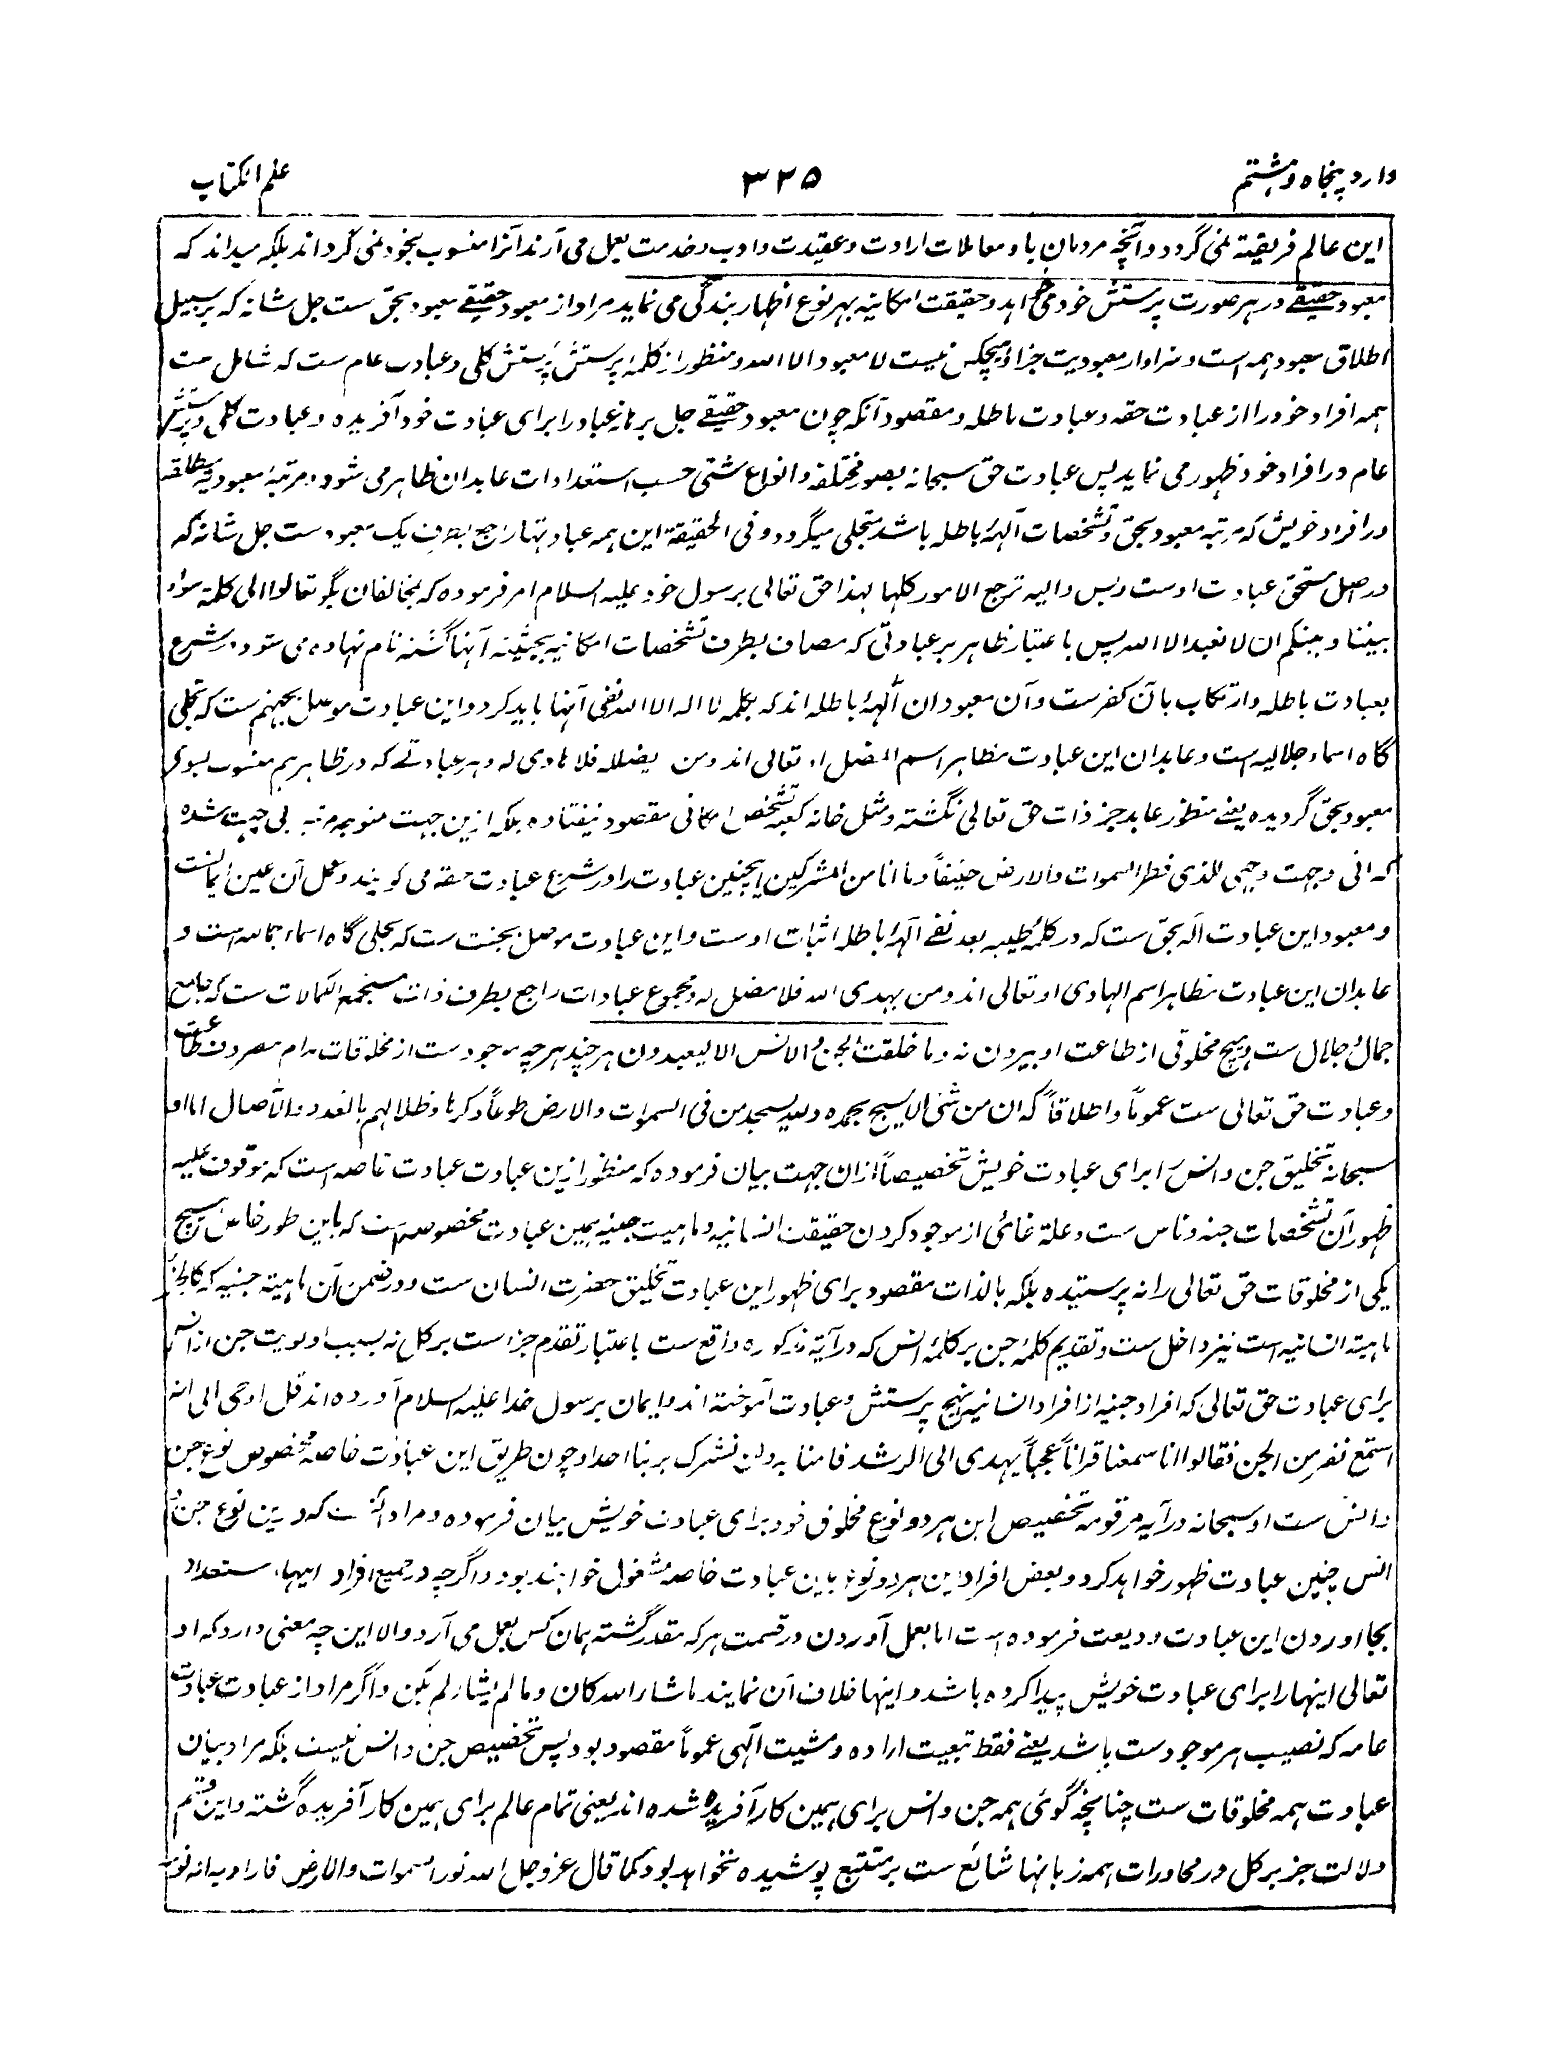 وارد پنجاه و هشتم
۳۲۵
علم الکتاب
این عالم فریفته نمی گردد و آنچه مردمان با و معاملات ارادت و عقیدت و ادب و خدمت بعمل می آرند آنرا منسوب بخود نمی گرداند بلکه میداند که
معبود حقیقے در هر صورت پرستش خود می خواهد و حقیقت امکانیه بهر نوع اظهار بندگی می نماید مراد از معبود حقیقے معبود بحق ست جل شانه که بر سبیل
اطلاق معبود همه است و سزاوار معبودیت جز او هیچکس نیست لا معبود الا الله و منظور از کلمهٔ پرستش پرستش کلی و عبادت عام ست که شامل ست
همه افراد خود را از عبادت حقه و عبادت باطله و مقصود آنکه چون معبود حقیقے جل برهانه عباد را برای عبادت خود آفریده و عبادت کلی و پرستش
عام در افراد خود ظهور می نماید پس عبادت حق سبحانه بصور مختلفه و انواع شتی حسب استعدادات عابدان ظاهر می شود و مرتبهٔ معبودیة مطلقه
در افراد خویش که مرتبه معبود بحق و تشخصات آلهٔه باطله باشد متجلی میگردد و فی الحقیقة این همه عبادتها راجع بطرف یک معبود ست جل شانه که
در اصل مستحق عبادت اوست و بس و الیه ترجع الامور کلها لهذا حق تعالی برسول خود علیه السلام امر فرموده که بمخالفان بگو تعالوا الی کلمة سواء
بیننا و بینکم ان لا نعبد الا الله پس با عتبار ظاهر هر عبادتی که مضاف بطرف تشخصات امکانیه بحیثیته آنها گشته نام نهاده می شود در شرع
بعبادت باطله و ارتکاب بآن کفرست و آن معبودان آلهٔه باطله اند که بکلمه لا اله الا الله نفی آنها باید کرد و این عبادت موصل بجهنم ست که تجلی
گاه اسماء جلالیه است و عابدان این عبادت مظاهر اسم المضل او تعالی اند و من یضلله فلا هادی له و هر عبادتے که در ظاهر هم منسوب بسوی
معبود بحق گردیده یعنے منظور عابد جز ذات حق تعالی نگشته و مثل خانه کعبه تشخص امکانی مقصود نیفتاده بلکه ازین جهت متوجه مرتبه بی جهت شده
که انی وجهت وجهی للذی فطر السموات والارض حنیفاً وما انا من المشرکین اینچنین عبادت را در شرع عبادت حقه می گویند و عمل آن عین ایمانست
و معبود این عبادت اله بحق ست که در کلمهٔ طیبه بعد نفے آلهٔه باطله اثبات اوست و این عبادت موصل بجنت ست که تجلی گاه اسماء جمالیه است و
عابدان این عبادت مظاهر اسم الهادی او تعالی اند و من یهدی الله فلا مضل له و مجموع عبادات راجع بطرف ذات مستجمع الکمالات ست که جامع
جمال و جلال ست و هیچ مخلوقی از طاعت او بیرون نه و ما خلقت الجن و الانس الا لیعبدون هر چند هر چه موجود ست از مخلوقات مدام مصروف طاعت
و عبادت حق تعالی ست عموماً و اطلاقاً که ان من شئ الا یسبح بحمده و لله یسجد من فی السموات والارض طوعاً و کرها و ظلالهم بالغدو والآصال اما او
سبحانه تخلیق جن و انس را برای عبادت خویش تخصیصاً ازان جهت بیان فرموده که منظور ازین عبادت عبادت خاصه است که موقوف علیه
ظهور آن تشخصات جنه و ناس ست و علة غائی از موجود کردن حقیقت انسانیه و ماهیت جنیه همین عبادت مخصوصه است که باین طور خاص هیچ
یکی از مخلوقات حق تعالی را نه پرستیده بلکه بالذات مقصود برای ظهور این عبادت تخلیق حضرت انسان ست و در ضمن آن ماهیته جنیه که کالجزء
ماهیته انسانیه است نیز داخل ست و تقدیم کلمهٔ جن بر کلمهٔ انس که در آیة مذکوره واقع ست باعتبار تقدم جز است بر کل نه بسبب اولویت جن از انس
برای عبادت حق تعالی که افراد جنیه از افراد انسانیه نهج پرستش و عبادت آموخته اند و ایمان برسول خدا علیه السلام آورده اند قل اوحی الی انه
استمع نفر من الجن فقالوا انا سمعنا قراناً عجباً یهدی الی الرشد فامنا به ولن نشرک بربنا احدا و چون طریق این عبادت خاصه مخصوص نوع جن
و انس ست او سبحانه در آیه مرقومه تخصیص این هر دو نوع مخلوق خود برای عبادت خویش بیان فرموده و مراد آنست که درین نوع جن و
انس چنین عبادت ظهور خواهد کرد و بعض افراد این هر دو نوع باین عبادت خاصه مشغول خواهند بود و اگرچه در جمیع افراد اینها استعداد
بجا اوردن این عبادت ودیعت فرموده است اما بعمل آوردن در قسمت هر که مقدر گشته همان کس بعمل می آرد والا این چه معنی دارد که او
تعالی اینها را برای عبادت خویش پیدا کرده باشد و اینها خلاف آن نمایند ما شاء الله کان و ما لم یشاء لم یکن و اگر مراد از عبادت عبادت
عامه که نصیب هر موجود ست باشد یعنے فقط تبعیت اراده و مشیت الٰهی عموماً مقصود بود پس تخصیص جن و انس نیست بلکه مراد بیان
عبادت همه مخلوقات ست چنانچه گوئی همه جن و انس برای همین کار آفریده شده اند یعنی تمام عالم برای همین کار آفریده گشته و این قسم
دلالت جز بر کل در محاورات همه زبانها شائع ست بر متتبع پوشیده نخواهد بود کما قال عز و جل الله نور السموات والارض فاراد به انه نور